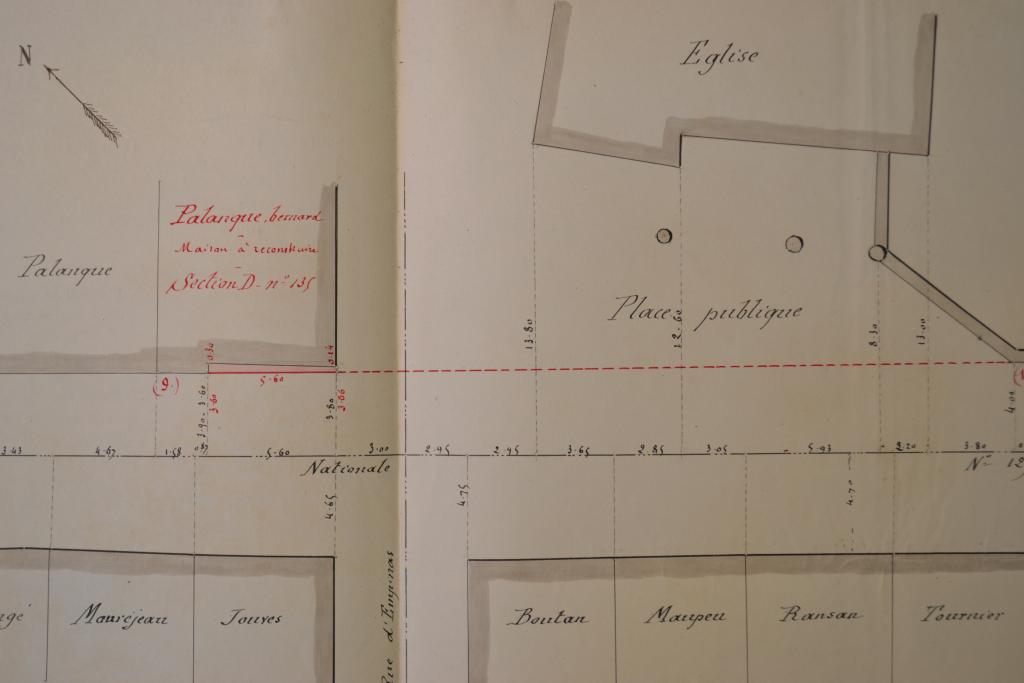 N
Eglise
Palanque, bernard
Maison à reconstruire
Section D - nº 135
Palanque
Place publique
13.80
12.60
8.30
13.00
0.30
0.14
(9.)
5.60
3.90
3.60
3.60
3.80
3.66
4.00
3.43
4.67
1.58
0.87
5.60
3.00
2.95
2.45
3.65
2.85
3.05
5.93
2.20
3.80
Nationale
Nº
4.65
4.75
4.70
Rue d'Empinas
Mouréjean
Jouves
Boutan
Maupeu
Ransan
Tournier